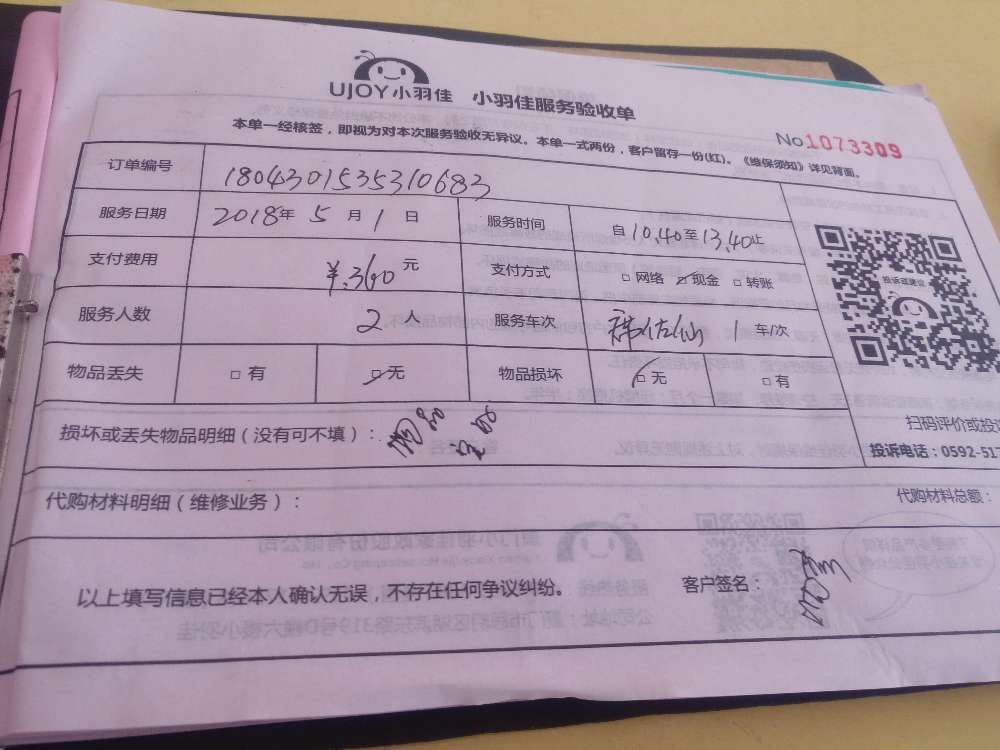 UJOY小羽佳 小羽佳服务验收单
本单一经核签，即视为对本次服务验收无异议。本单一式两份，客户留存一份(红)。《维保须知》详见背面。
No1073309
订单编号 1804301535310683
服务日期 2018年 5 月 1 日 服务时间 自10.40至13.40止
支付费用 ¥.360元 支付方式 □网络 □现金 □转账
服务人数 2人 服务车次 1 车/次
物品丢失 □有 □无 物品损坏 □无 □有
投诉或建议
损坏或丢失物品明细（没有可不填）：
扫码评价或投
投诉电话：0592-517
代购材料明细（维修业务）：
代购材料总额：
以上填写信息已经本人确认无误，不存在任何争议纠纷。 客户签名：